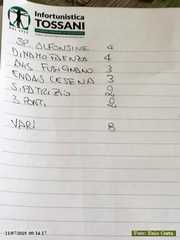 Infortunistica
TOSSANI
SP. ALFONSINE 4
DINAMO FAENZA 4
AUS FUSIGNANO 3
ENDAS CESENA 3
S. PATRIZIO 2
3 PONTI 2
VARI 8
11/07/2021
Foto: Enio Costa